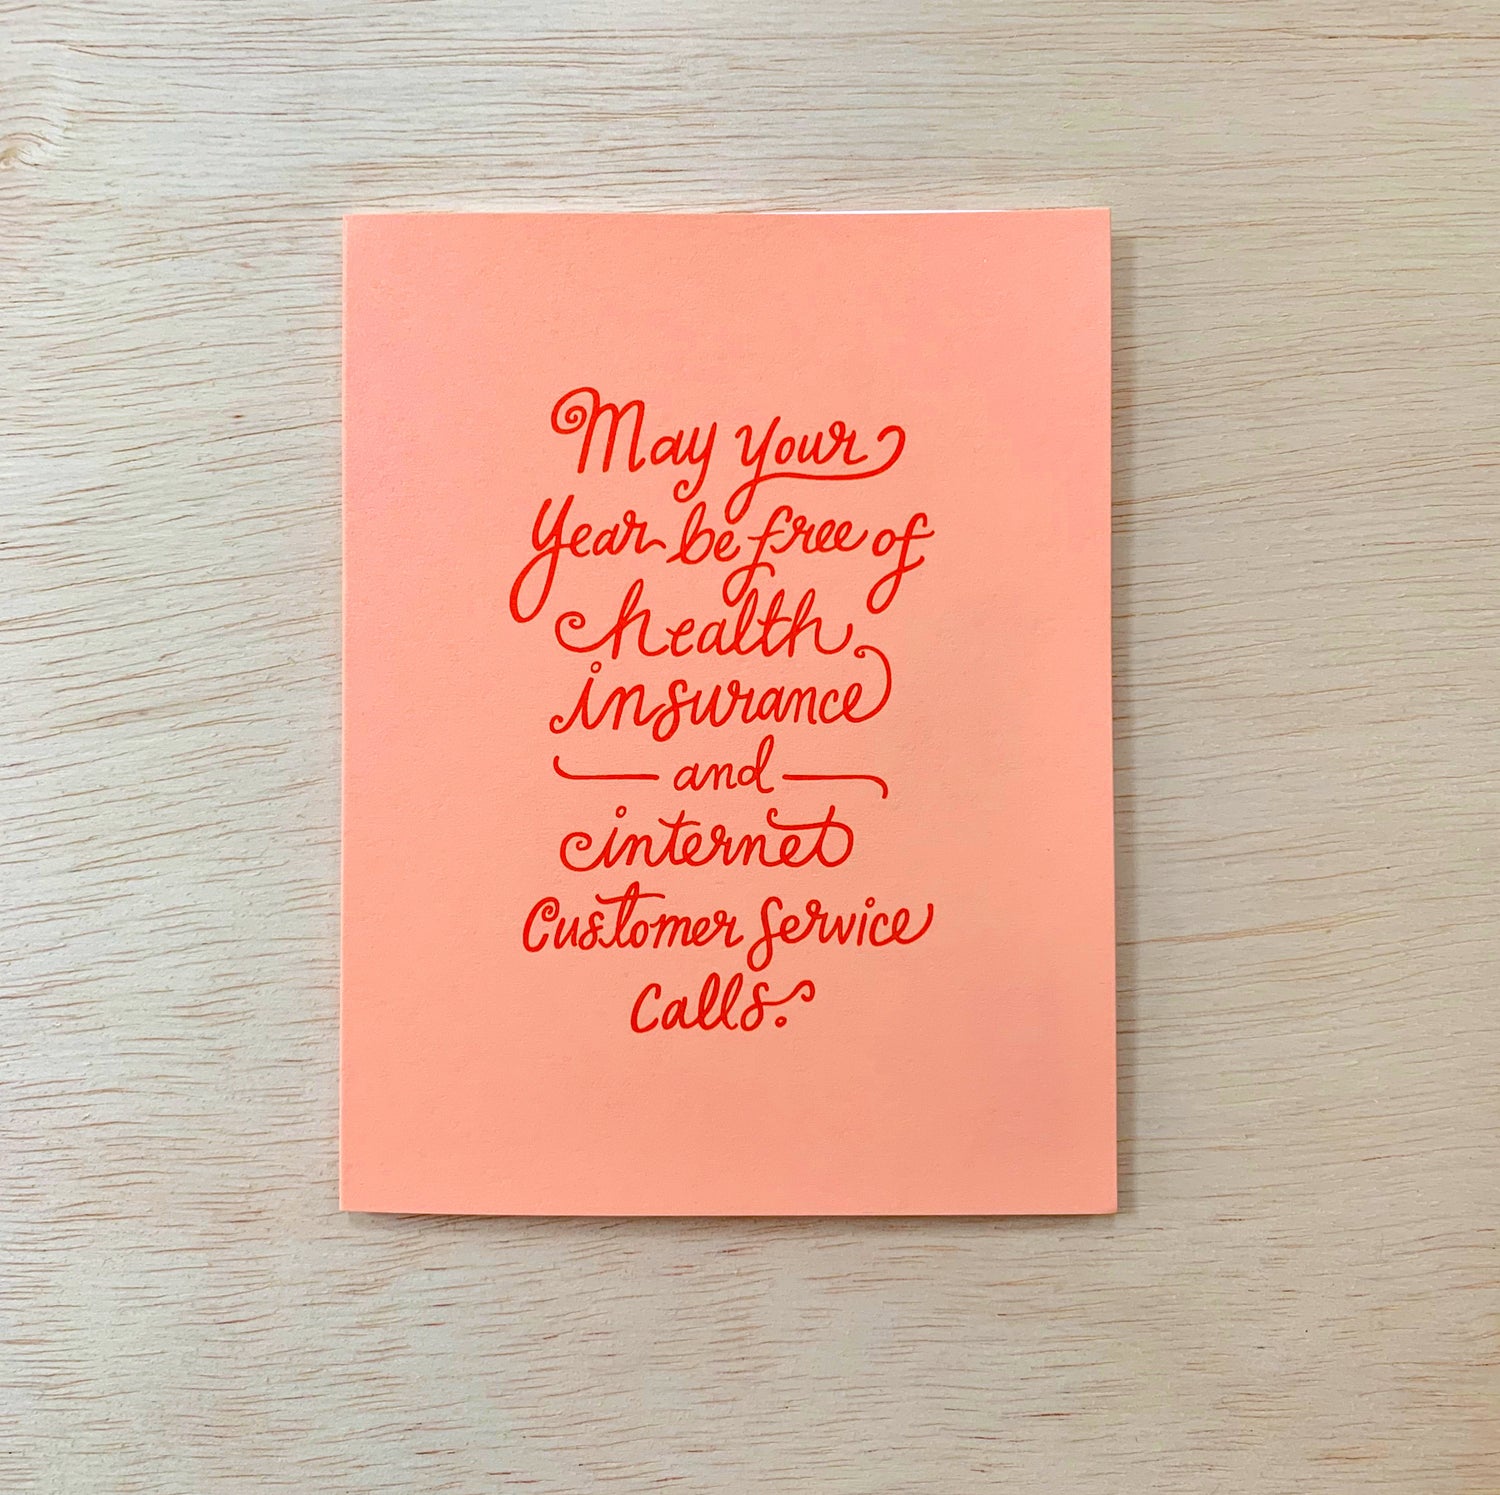 May your
year be free of
health
insurance
and
internet
Customer Service
Calls.